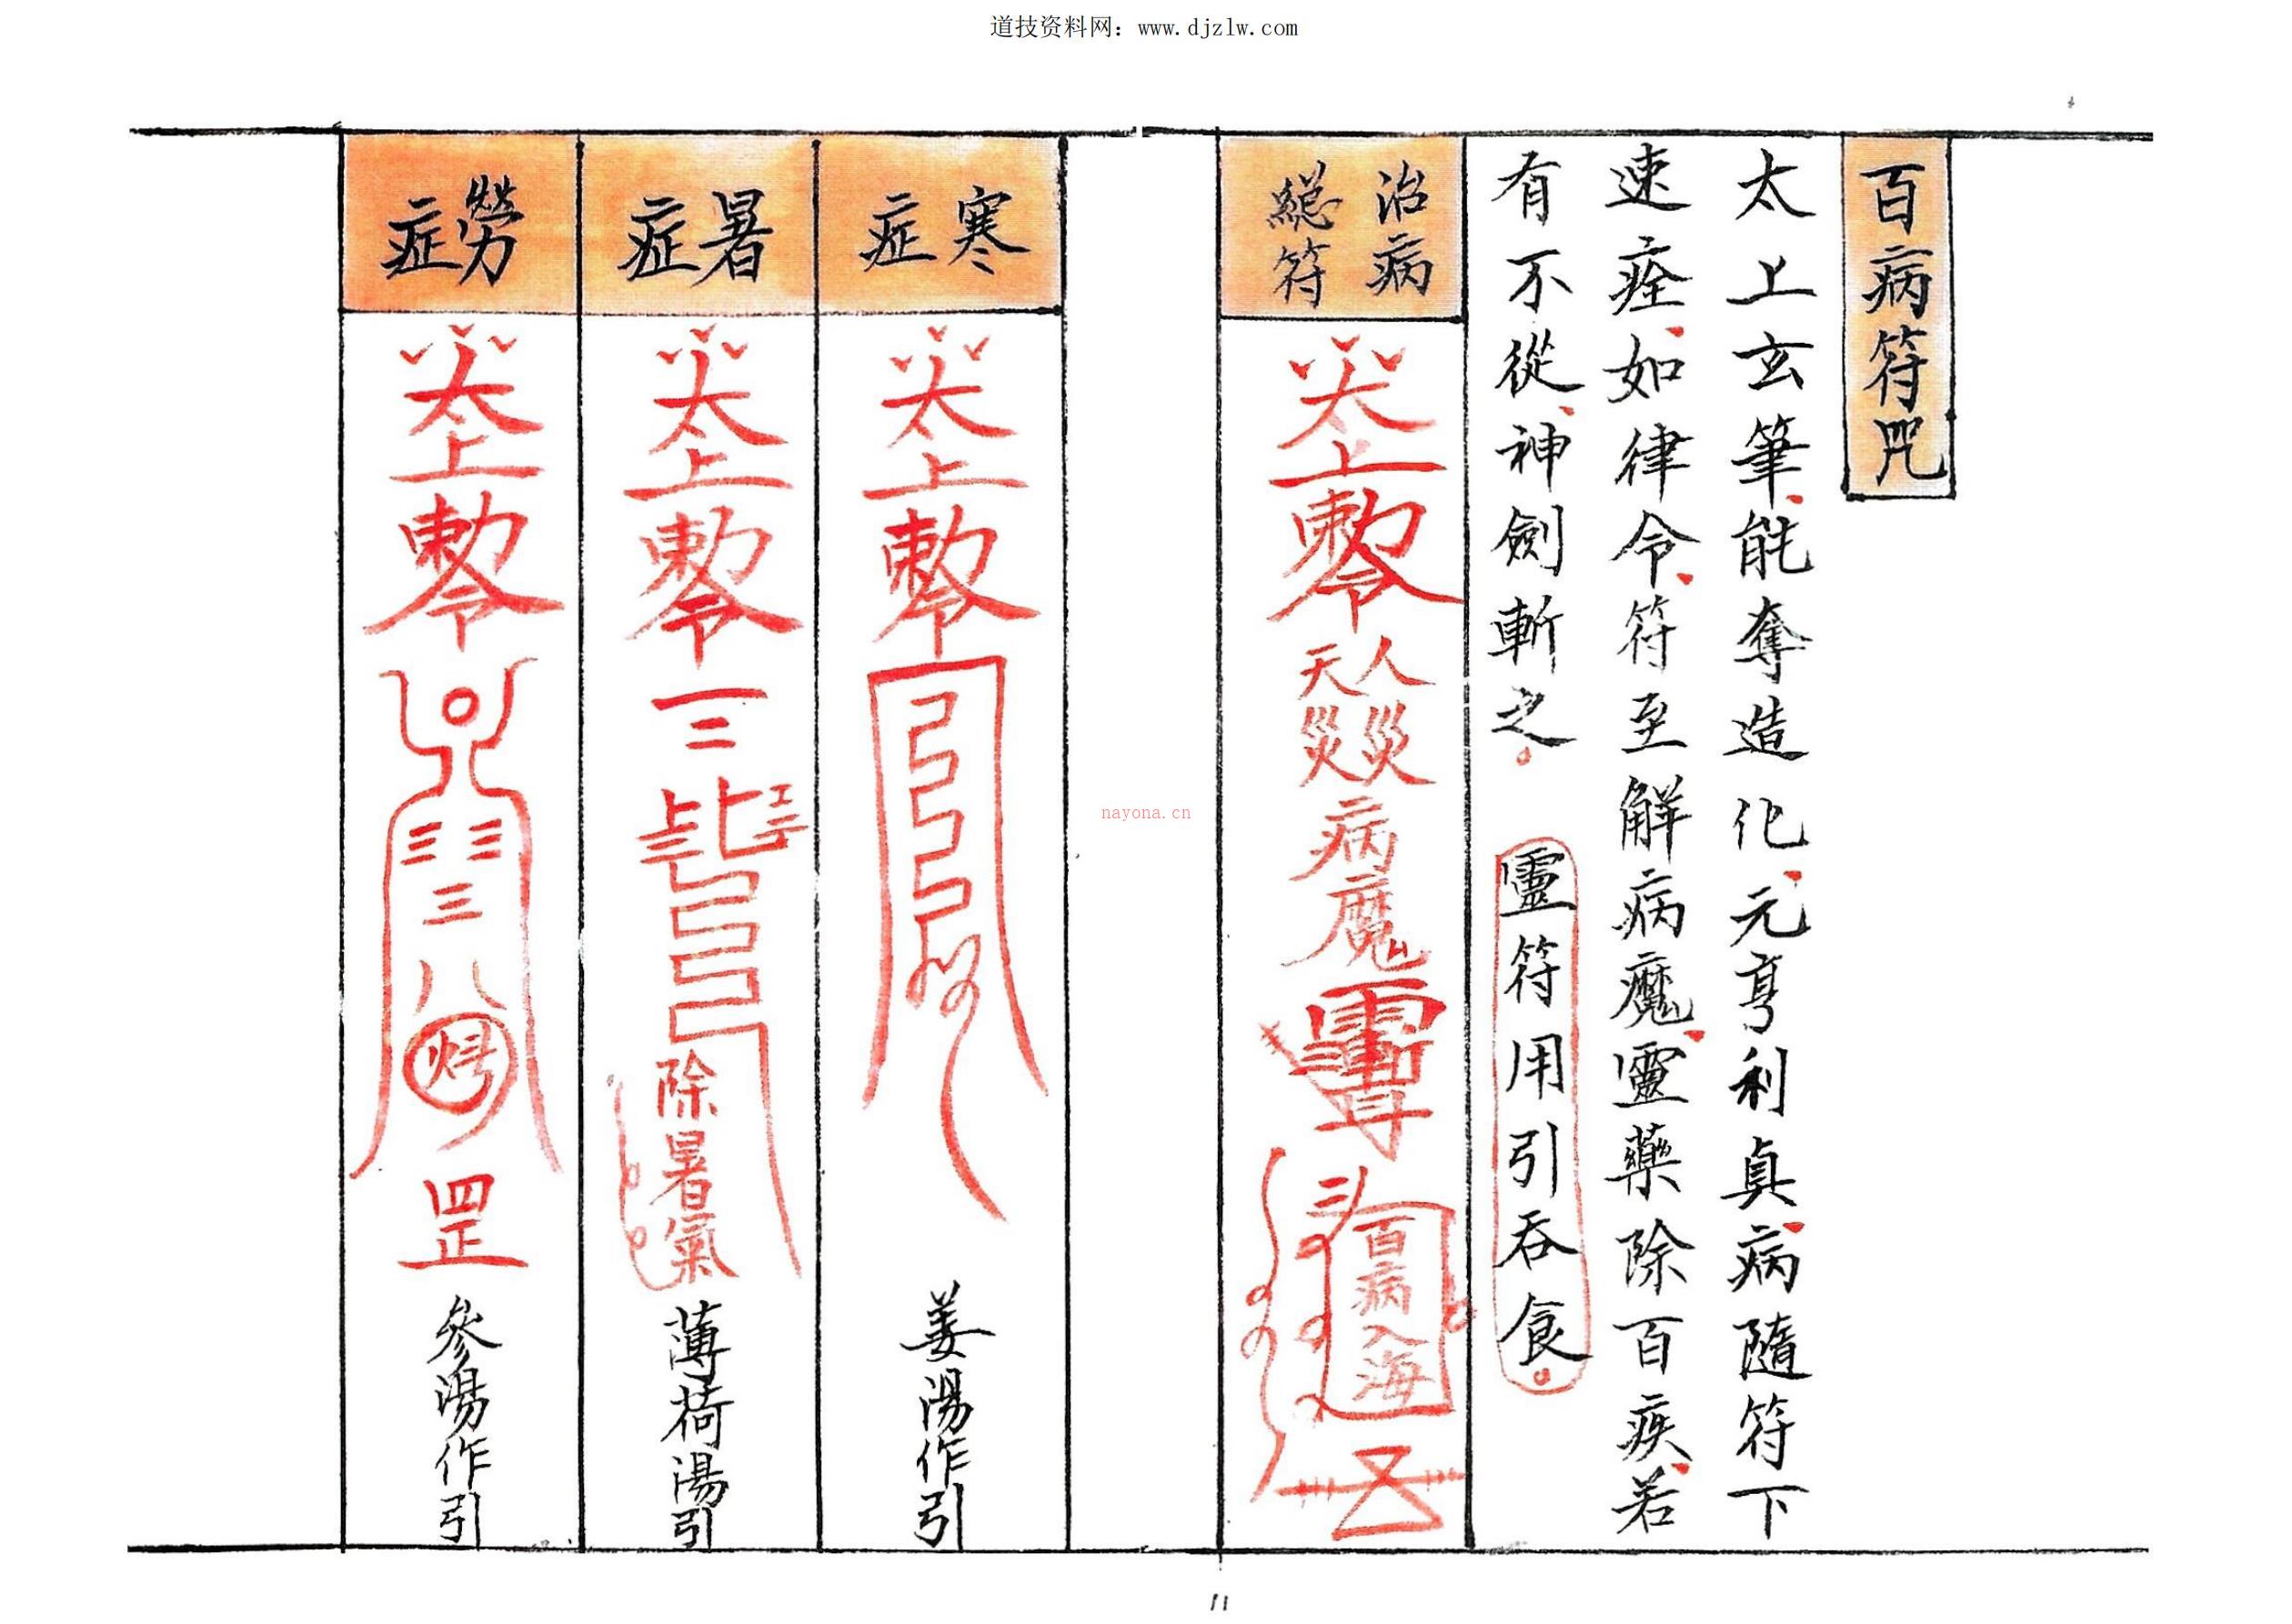 道技资料网：www.djzlw.com
百病符咒
太上玄筆能奪造化元亨利貞病隨符下
速痊如律令符至解病魔靈藥除百疾若
有不從神劍斬之
靈符用引吞食
治病
總符
太上敕令
人災
天災
病魔
百病入海
nayona.cn
寒症
太上敕令
姜湯作引
暑症
太上敕令
除暑氣
薄荷湯引
勞症
太上敕令
罡
參湯作引
11